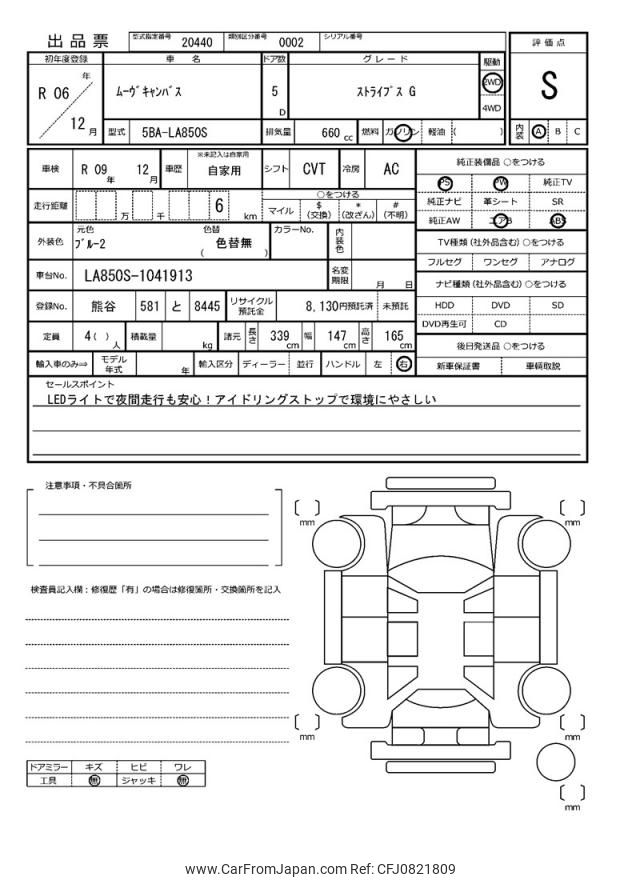 出品票 型式指定番号 20440 類別区分番号 0002 シリアル番号
評価点
S
内装 A B C
初年度登録 車名 ドア数 グレード 駆動
R 06 年 12 月 ムーヴキャンバス 5 D ストライプス G 2WD 4WD
型式 5BA-LA850S 排気量 660 cc 燃料 ガソリン 軽油 ( )
車検 R 09 年 12 月 車歴 ※未記入は自家用 自家用 シフト CVT 冷房 AC
走行距離 万 千 6 km ○をつける
マイル $ (交換) * (改ざん) # (不明)
外装色 元色 ブルー2 色替 ( 色替無 ) カラーNo. 内装色
車台No. LA850S-1041913 名変期限 月 日
登録No. 熊谷 581 と 8445 リサイクル預託金 8,130円預託済 未預託
定員 4( ) 人 積載量 kg 諸元 長さ 339 cm 幅 147 cm 高さ 165 cm
輸入車のみ⇒ モデル年式 年 輸入区分 ディーラー 並行 ハンドル 左 右
純正装備品 ○をつける
PS PW 純正TV
純正ナビ 革シート SR
純正AW エアB ABS
TV種類 (社外品含む) ○をつける
フルセグ ワンセグ アナログ
ナビ種類 (社外品含む) ○をつける
HDD DVD SD
DVD再生可 CD
後日発送品 ○をつける
新車保証書 車輌取説
セールスポイント
LEDライトで夜間走行も安心！アイドリングストップで環境にやさしい
注意事項・不具合箇所
検査員記入欄：修復歴「有」の場合は修復箇所・交換箇所を記入
ドアミラー キズ ヒビ ワレ
工具 無 ジャッキ 無
mm
mm
mm
mm
mm
www.CarFromJapan.com Ref: CFJ0821809